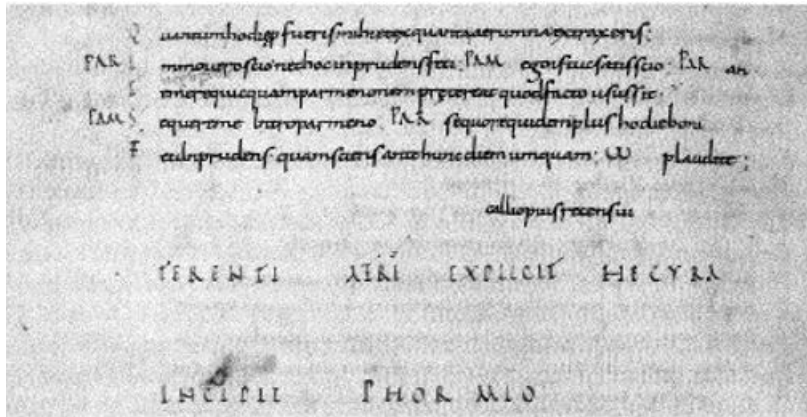 Q uantum hodie pfueris mihi et ex quanta aerumna extraxeris:
PAR I mmo uero scio nec hoc inprudens feci: PAM ego istuc satis scio: PAR an
T emere quicquam parmenonem pretereat quod facto usus sit
PAM S equere me intro parmeno PAR sequor equidem plus hodie boni
F eci inprudens quam sciens ante hunc diem umquam: ω plaudite:
calliopius recensui
TERENTI AFRI EXPLICIT HECYRA
INCIPIT PHORMIO